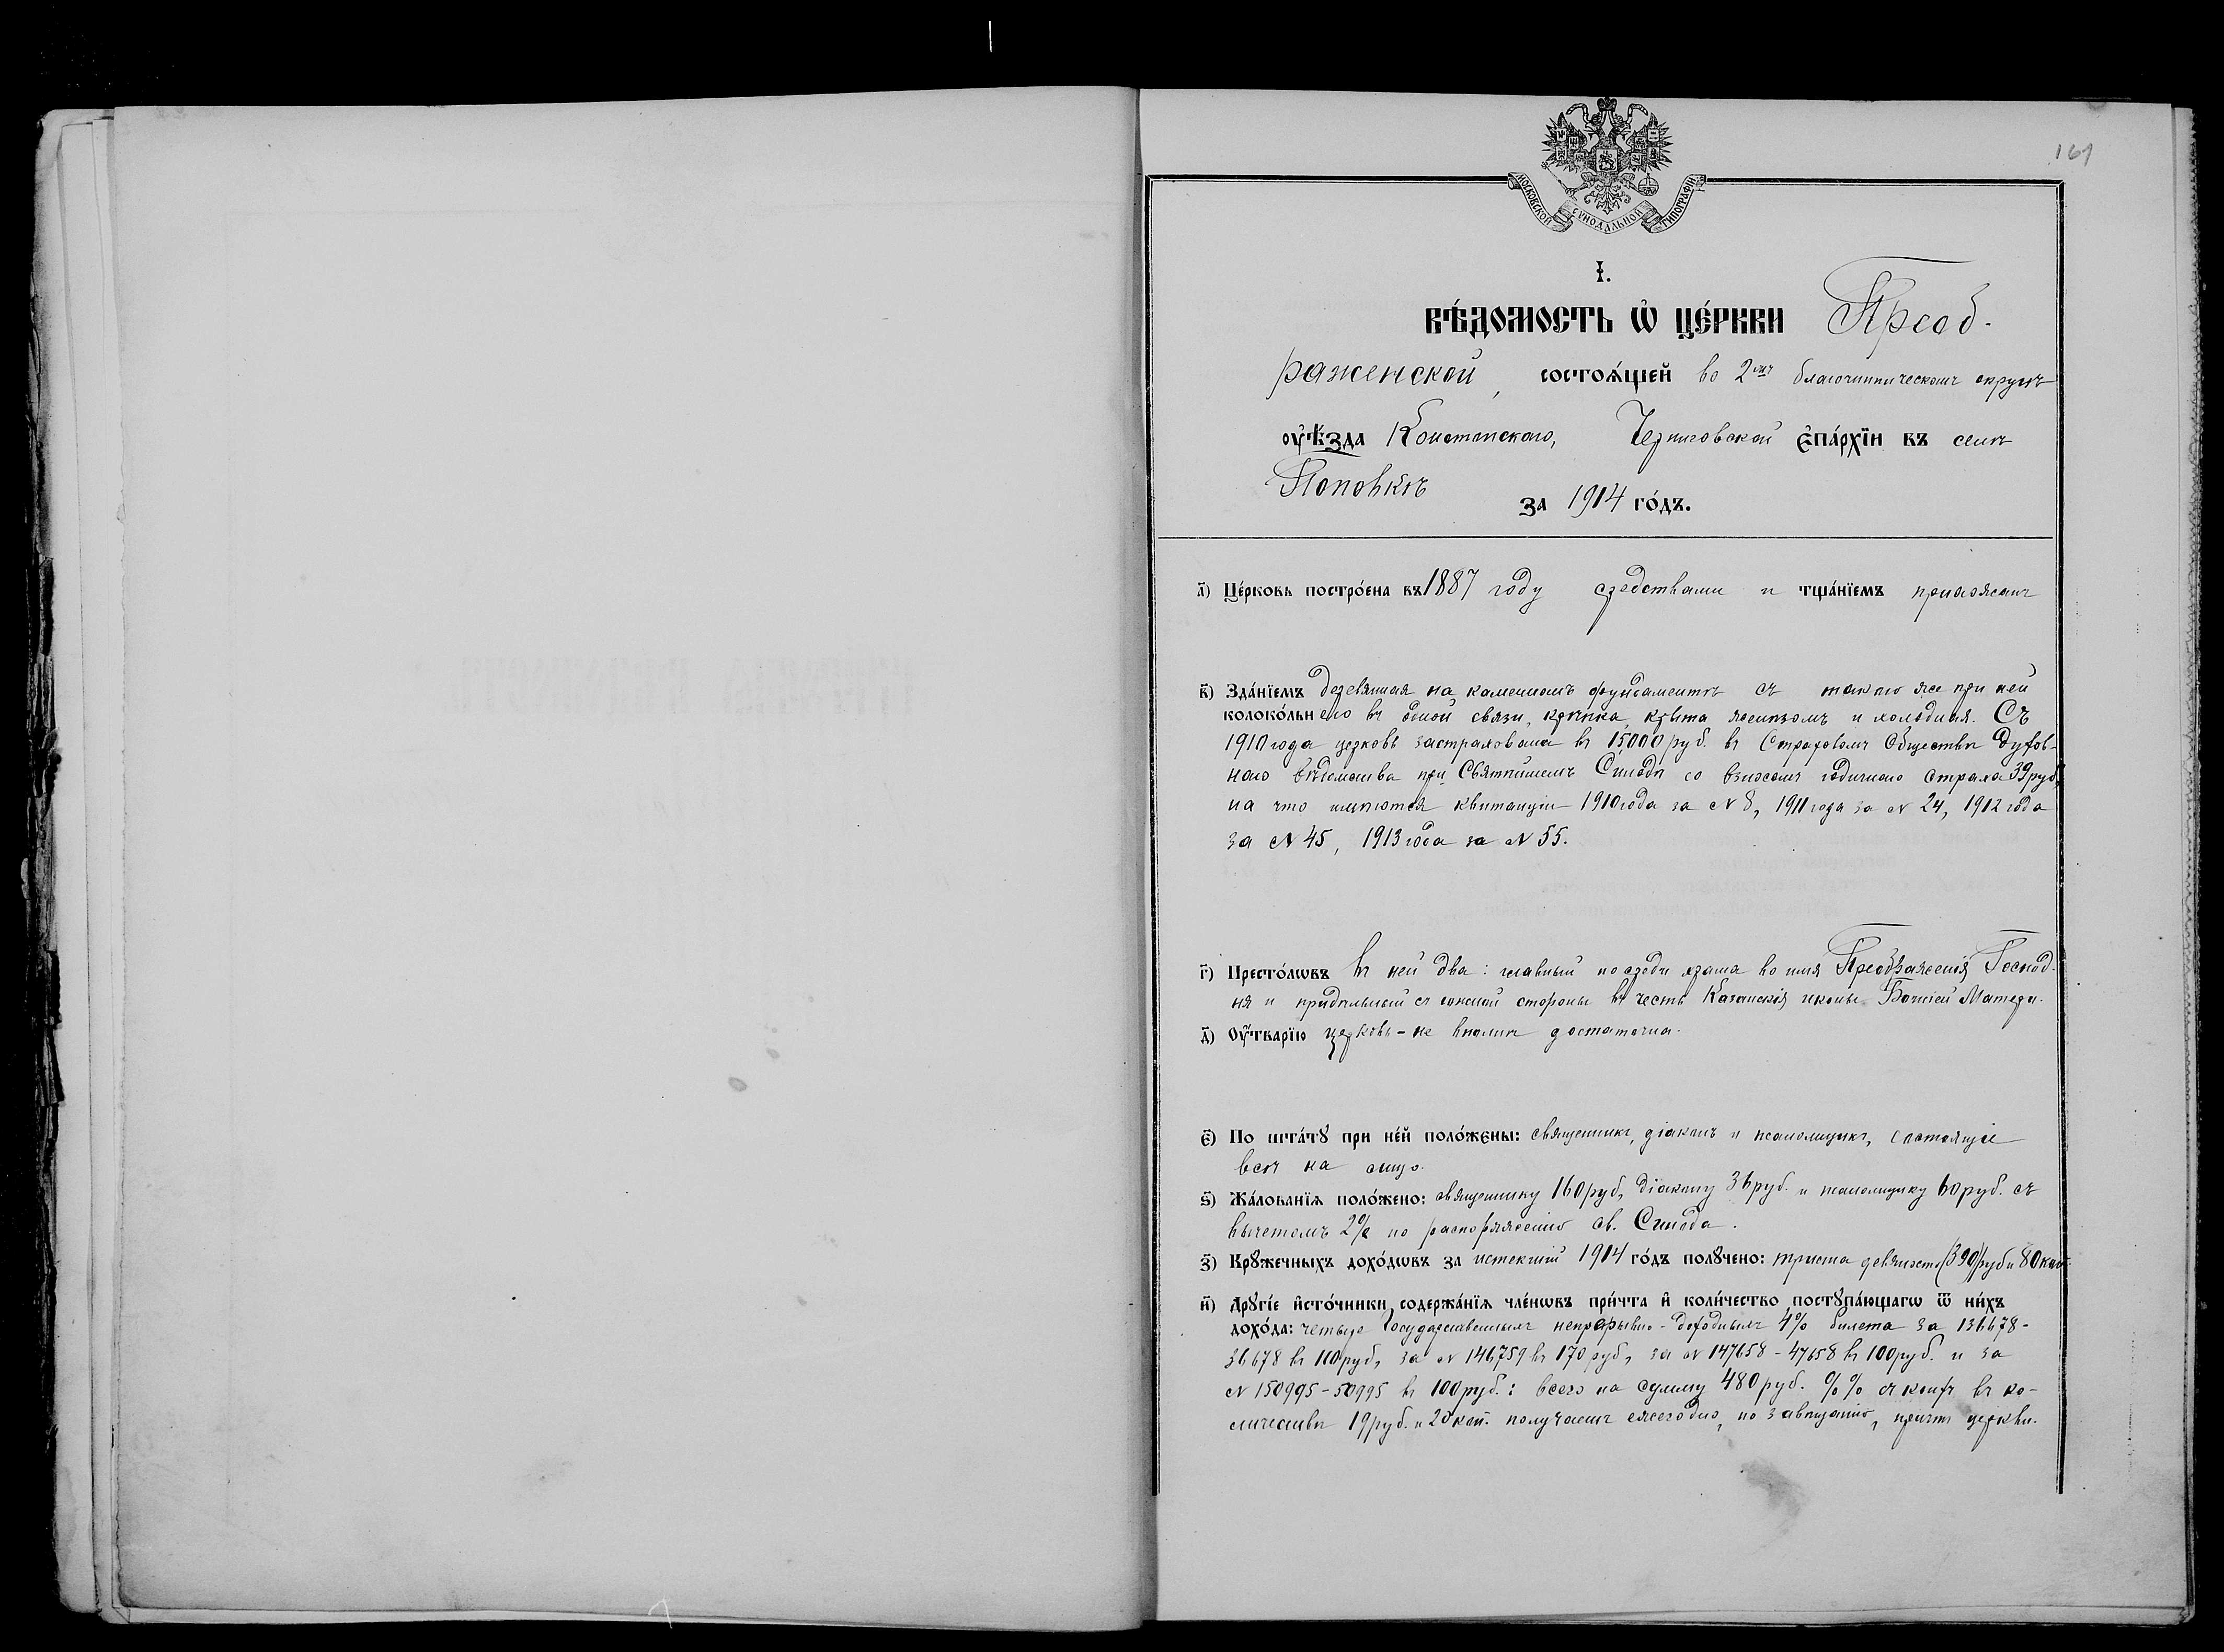 161
МОСКОВСКОЙ СУНОДАЛЬНОЙ ТИПОГРАФІИ
І.
ВѢ́ДОМОСТЬ Ѽ ЦЕ́РКВИ Преоб-
раженской, состоѧ́щей во 2мъ благочинническомъ округѣ
ᲂу҆ѣ́зда Конотпскаго, Черниговской є҆па́рхїи въ селѣ
Поповкѣ
за 1914 го́дъ.
а҃) Це́рковь постро́ена въ 1887 году средствами и тща́нїемъ прихожанъ
в҃) Зда́нїемъ деревянная на каменномъ фундаментѣ съ такою же при ней
колоко́льнею въ одной связи, крѣпка, крыта желѣзомъ и холодная. Съ
1910 года церковь застрахована въ 15000 руб. въ Страховомъ Обществѣ Духов-
наго вѣдомства при Святѣйшемъ Синодѣ со взносомъ годичнаго страха 39 руб.,
на что имѣются квитанціи – 1910 года за № 8, 1911 года за № 24, 1912 года
за № 45, 1913 года за № 55.
г҃) Престо́лѡвъ въ ней два: главный посреди храма во имя Преображенія Господ-
ня и придѣльный съ южной стороны въ честь Казанскія иконы Божіей Матери.
д҃) Оу҆́тварїю церковь – не вполнѣ достаточна.
є҃) По шта́тꙋ при не́й поло́жєны: священникъ, діаконъ и псаломщикъ, состоящіе
всѣ на лицо.
ѕ҃) Жа́лованїѧ поло́жено: священнику 160 руб., діакону 36 руб. и псаломщику 60 руб. съ
вычетомъ 2% по распоряженію св. Синода.
з҃) Крꙋ́жечныхъ дохо́дѡвъ за истекшій 1914 го́дъ полꙋ́чено: триста девяносто (390) руб и 80 коп
и҃) Дрꙋгі́е и҆сто́чники содержа́нїѧ чле́нѡвъ при́чта и҆ коли́чество постꙋпа́ющагѡ ѿ ни́хъ
дохо́да: четыре Государственныхъ непрерывно-доходныхъ 4% билета за 136678-
36678 въ 110 руб., за № 146759 въ 170 руб., за № 147658-47658 въ 100 руб. и за
№ 150995-50995 въ 100 руб.: всего на сумму 480 руб. %% съ коихъ въ ко-
личествѣ 19 руб. и 20 коп. получаетъ ежегодно, по завѣщанію, причтъ церкви.